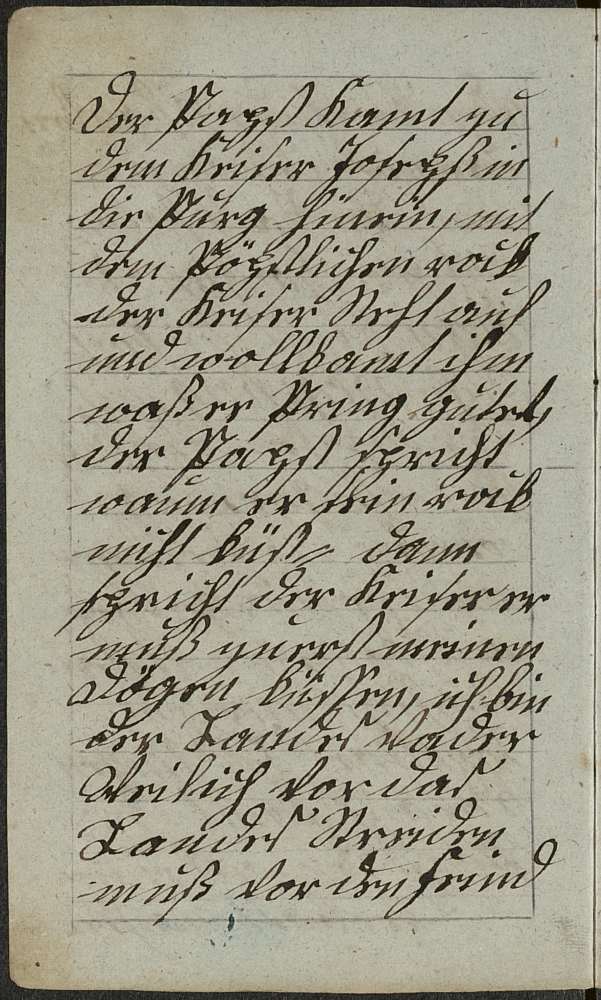 Der Papst kamt zu
dem Keiser Josepß in
die Purg hinein, mit
dem Pöpstlichen rock
der Keiser Steht auf
und wollkamt ihm
waß er Pring gutes,
der Papst spricht
warum er sein rock
nicht küst, dann
spricht der Keiser er
muß zuerst meinen
Dögen küssen, ich bin
der Landes Vader
Weil ich vor das
Landes Streiden
muß vor den Feind